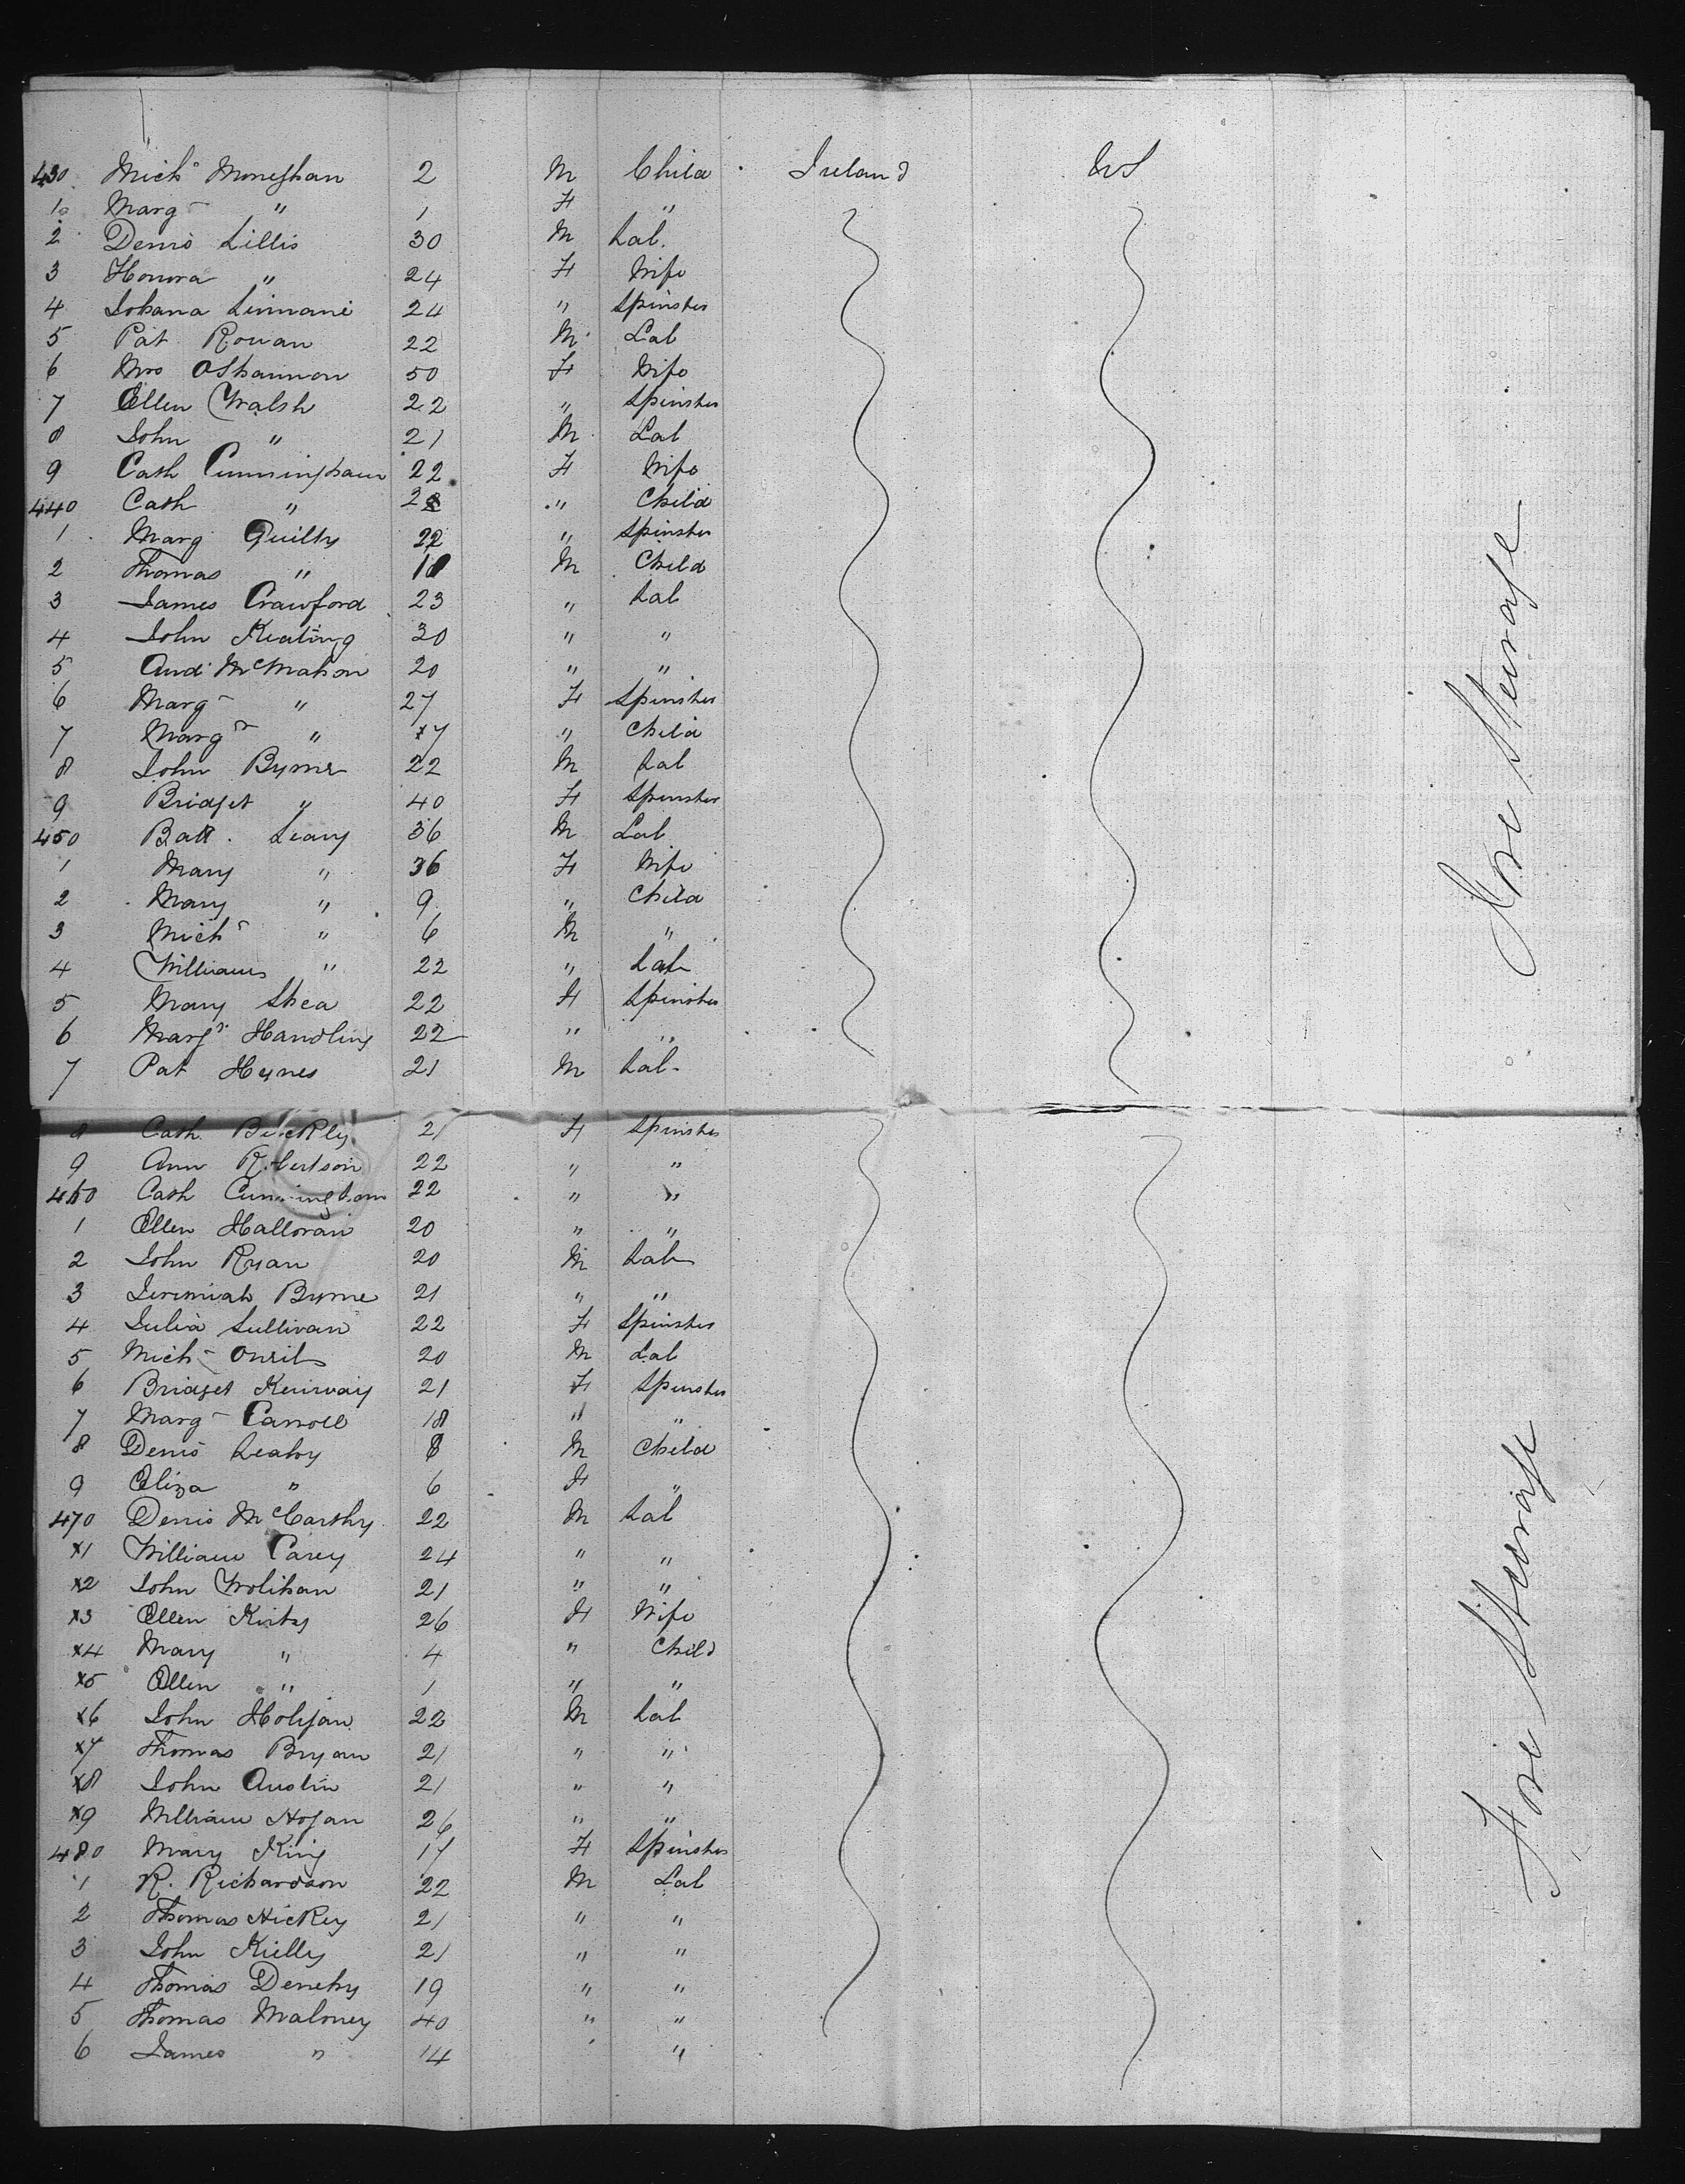 430 Mich Moneghan 2 M Child Ireland US
1 Marg " 1 F "
2 Denis Lillis 30 M Lab.
3 Honora " 24 F Wife
4 Johana Linnane 24 " Spinster
5 Pat Rouan 22 M Lab
6 Mrs OShannon 50 F Wife
7 Ellen Walsh 22 " Spinster
8 John " 21 M Lab
9 Cath Cunningham 22 F Wife
440 Cath " " Child
1 Marg Quilty 22 " Spinster
2 Thomas " M Child
3 James Crawford 23 " Lab
4 John Keating 30 " "
5 And McMahon 20 " "
6 Marg " 27 F Spinster
7 Margr " 7 " Child
8 John Byrne 22 M Lab
9 Bridget " 40 F Spinster
450 Batt. Leary 36 M Lab
1 Mary " 36 F Wife
2 Mary " 9 " Child
3 Mich " 6 M "
4 William " 22 " Lab
5 Mary Shea 22 F Spinster
6 Margr Handling 22 " "
7 Pat Hynes 21 M Lab
8 Cath Buckley 21 F Spinster
9 Ann Robertson 22 " "
460 Cath Cunningham 22 " "
1 Ellen Halloran 20 " "
2 John Ryan 20 M Lab
3 Jeremiah Byrne 21 " "
4 Julia Sullivan 22 F Spinster
5 Mich Oneil 20 M Lab
6 Bridget Kenivay 21 F Spinster
7 Marg Carroll 18 " "
8 Denis Leahy 8 M Child
9 Eliza " 6 F "
470 Denis McCarthy 22 M Lab
x1 William Carey 24 " "
x2 John Wolihan 21 " "
x3 Ellen Kirby 26 F Wife
x4 Mary " 4 " Child
x5 Ellen " 1 " "
x6 John Holigan 22 M Lab
x7 Thomas Bryan 21 " "
x8 John Austin 21 " "
x9 William Hogan 26 " "
480 Mary King 17 F Spinster
1 R. Richardson 22 M Lab
2 Thomas Hickey 21 " "
3 John Kielly 21 " "
4 Thomas Denehy 19 " "
5 Thomas Maloney 40 " "
6 James " 14 "
Fore Steerage
Fore Steerage